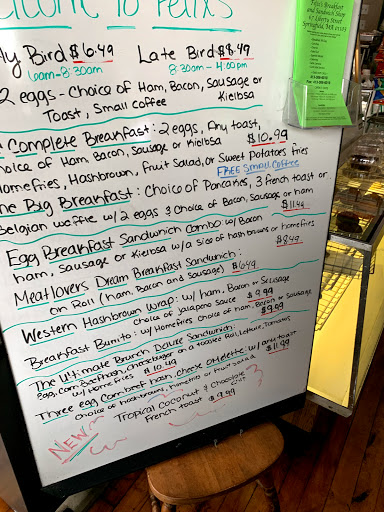 Welcome to Felix's
ly Bird $6.49 Late Bird $8.49
6am-8:30am 8:30am - 4:00pm
2 eggs - Choice of Ham, Bacon, Sausage or
Toast, Small coffee Kielbsa
Complete Breakfast: 2 eggs, Any toast,
hoice of Ham, Bacon, Sausage or Kielbsa $10.99
Homefries, Hashbrown, Fruit Salad, or Sweet Potatoes fries
FREE Small Coffee
he Big Breakfast: Choice of Pancakes, 3 french toast or
Belgian waffle w/ 2 eggs & Choice of Bacon, Sausage or ham
$11.49
Egg Breakfast Sandwich Combo w/ Bacon
ham, Sausage or Kielbasa w/ a Side of hashbrowns or homefries
$8.49
Meatlovers Dream Breakfast Sandwich:
on Roll (ham, Bacon and Sausage) $6.49
Western Hashbrown Wrap: w/ ham, Bacon or Sausage
choice of Jalapeno Sauce $9.99
Breakfast Burrito: w/ Homefries choice of ham, Bacon or Sausage
$9.99
The Ultimate Brunch Deluxe Sandwich:
egg, Corn Beef hash, Cheeseburger on a toasted Roll, lettuce, Tomatoes
w/ Home fries $10.49
Three egg Corn beef hash, cheese Omelette: w/ any toast
choice of hashbrowns, homefries or fruit salad $11.99
NEW Tropical Coconut & Chocolate
French toast $9.99
Felix's Breakfast
and Sandwich Shop
Springfield, MA